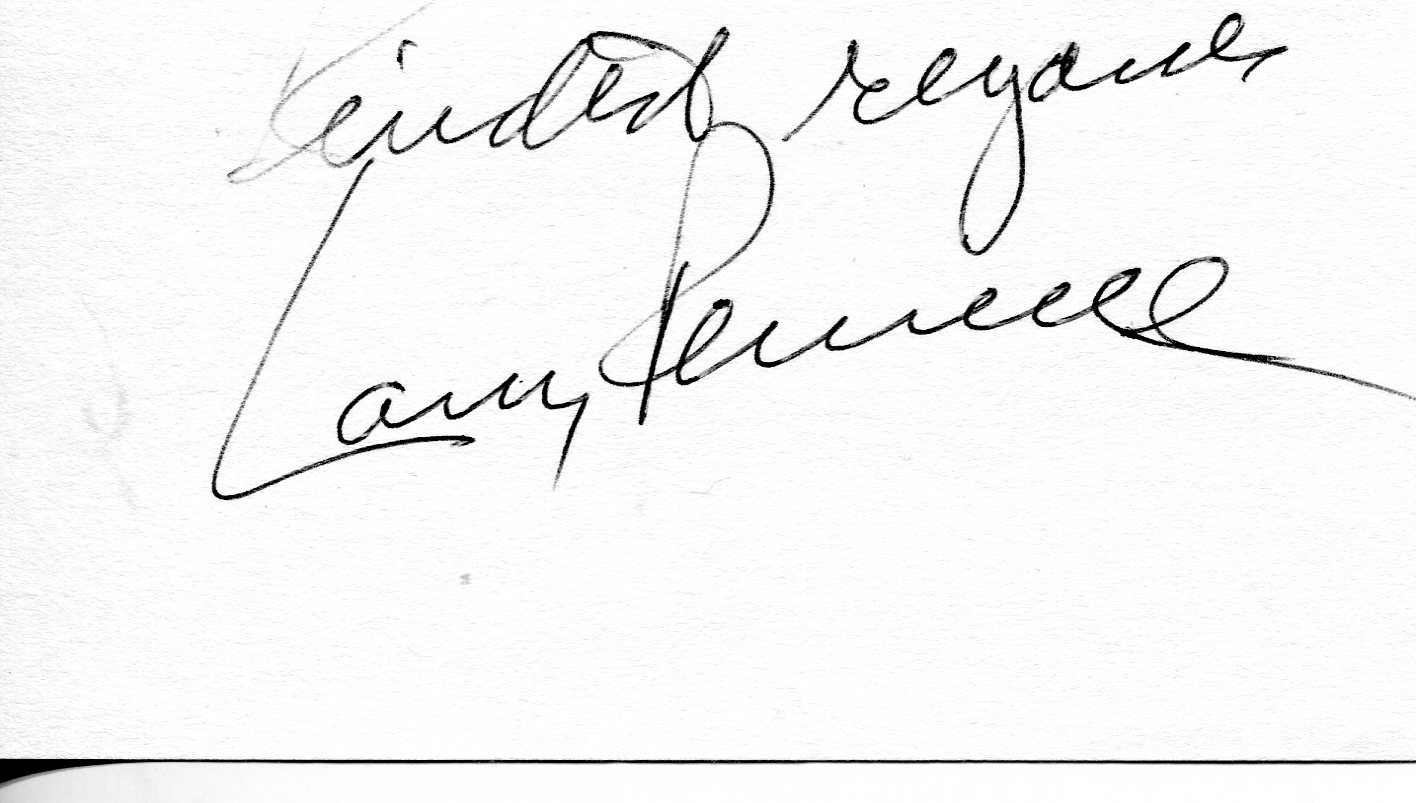 Kindest regards
Larry Pennell